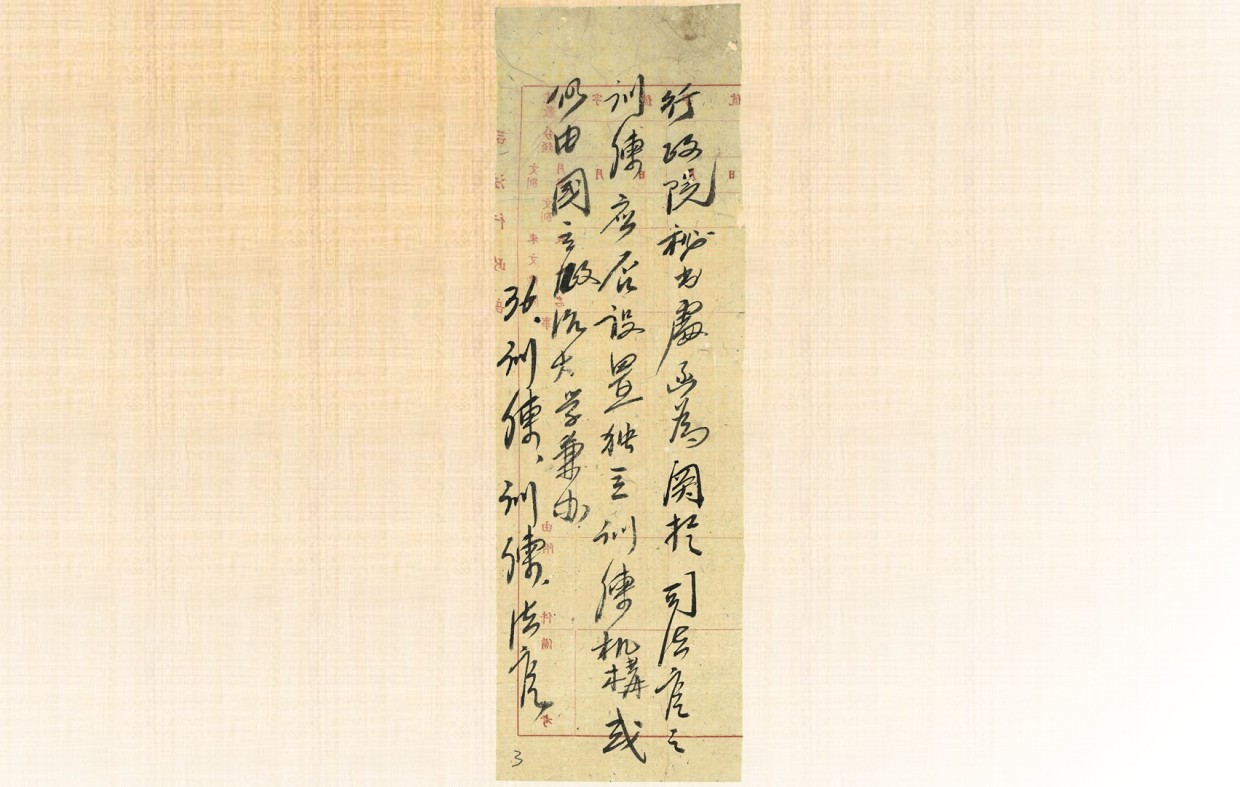 行政院秘书處函為関於司法官之
訓練應否設置独立訓練機構或
仍由國立政治大学兼办
36.訓練、訓練、法官
3